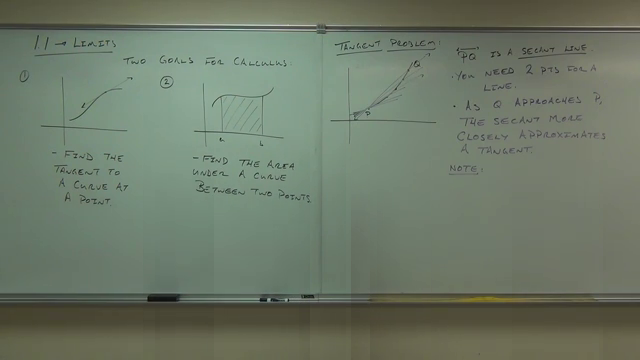 1.1 → LIMITS
TWO GOALS FOR CALCULUS.
①
- FIND THE
TANGENT TO
A CURVE AT
A POINT.
②
a b
- FIND THE AREA
UNDER A CURVE
BETWEEN TWO POINTS
TANGENT PROBLEM:
Q
P
PQ IS A SECANT LINE.
· YOU NEED 2 PTS FOR A
LINE.
· AS Q APPROACHES P,
THE SECANT MORE
CLOSELY APPROXIMATES
A TANGENT.
NOTE: